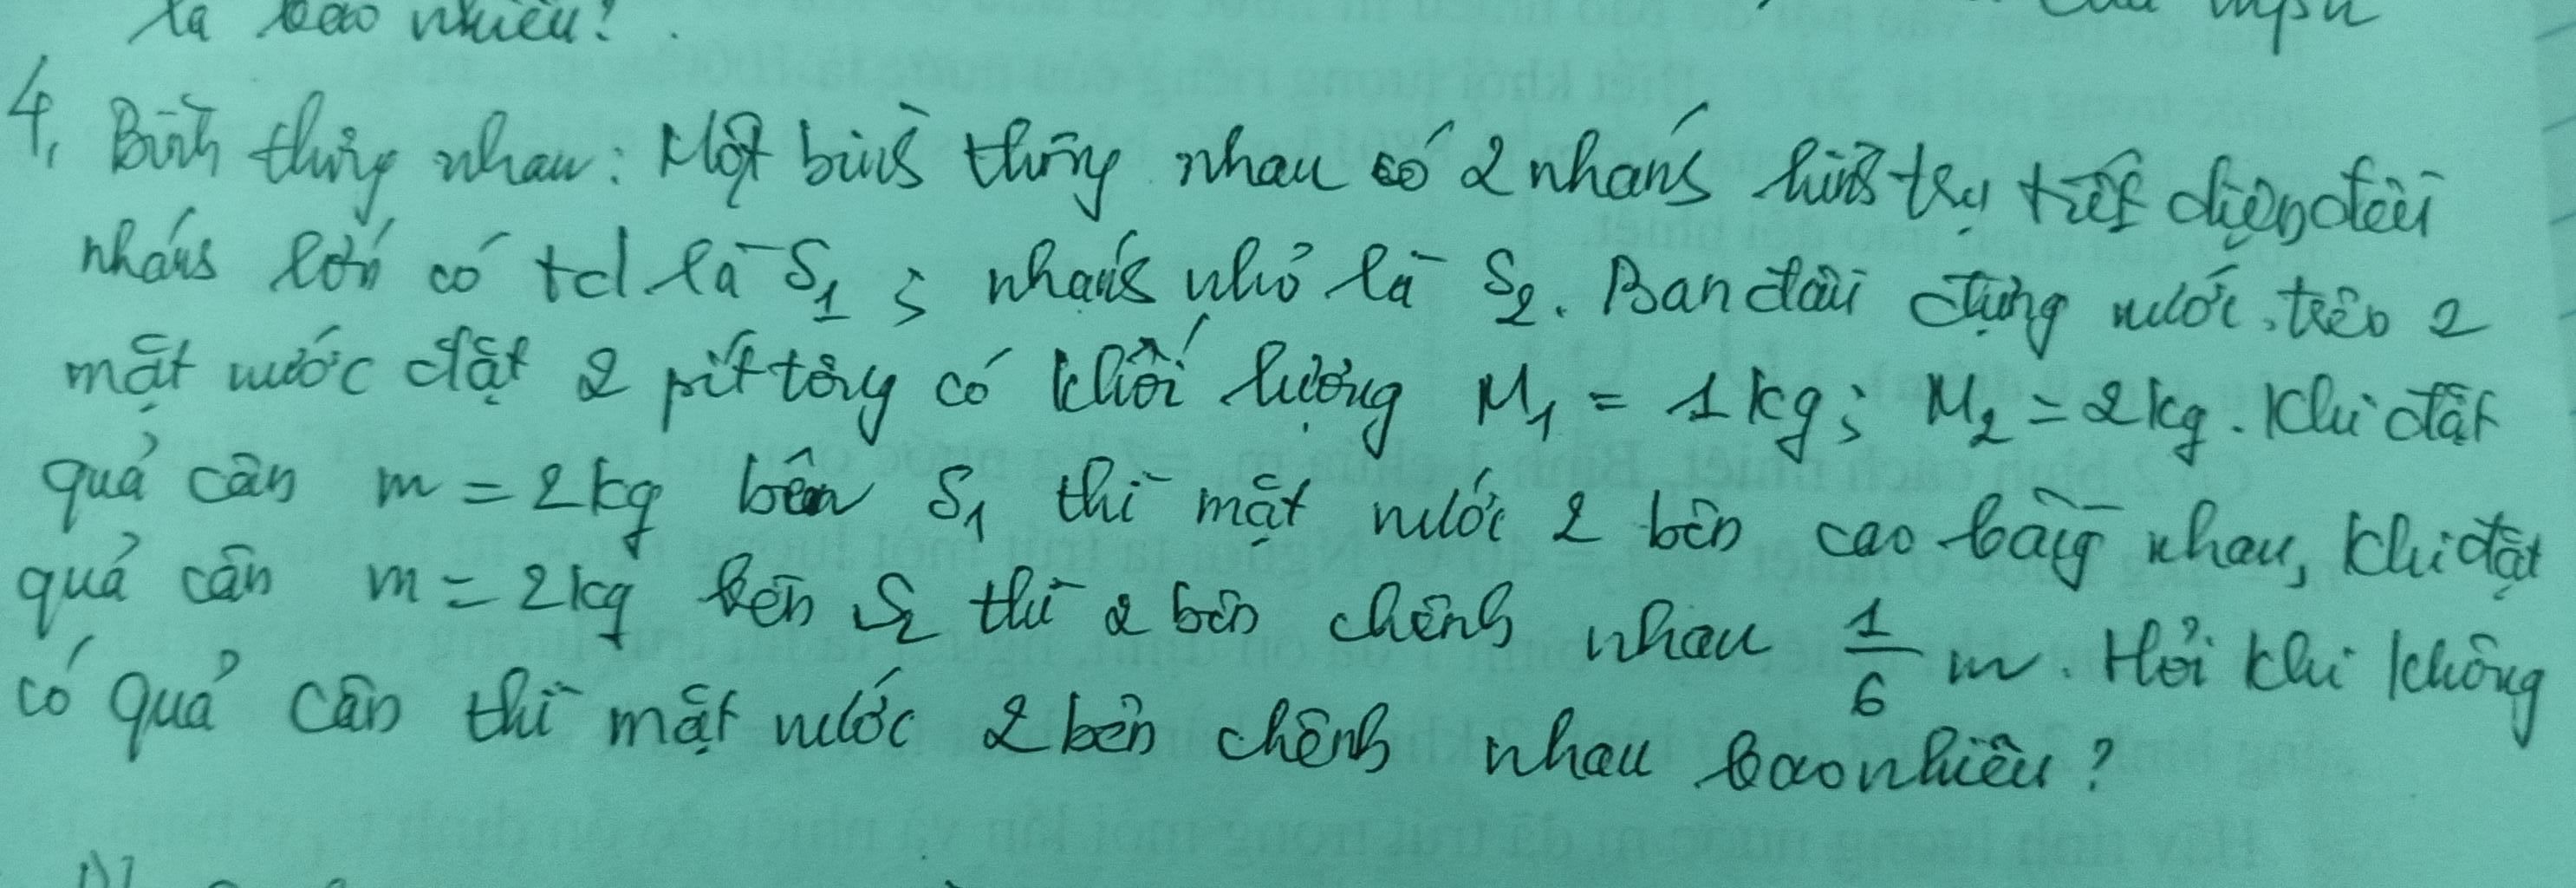 xa bao nhiêu?
4, Bình thông nhau: Một bình thông nhau có 2 nhánh hình trụ tiết diện đều
nhánh lớn có td là S1; nhánh nhỏ là S2. Ban đầu đựng nước, trên 2
mặt nước đặt 2 pít tông có khối lượng M1 = 1kg; M2 = 2kg. Khi đặt
quả cân m = 2kg bên S1 thì mặt nước 2 bên cao bằng nhau, khi đặt
quả cân m = 2kg bên S2 thì 2 bên chênh nhau 1/6 m. Hỏi khi không
có quả cân thì mặt nước 2 bên chênh nhau bao nhiêu?